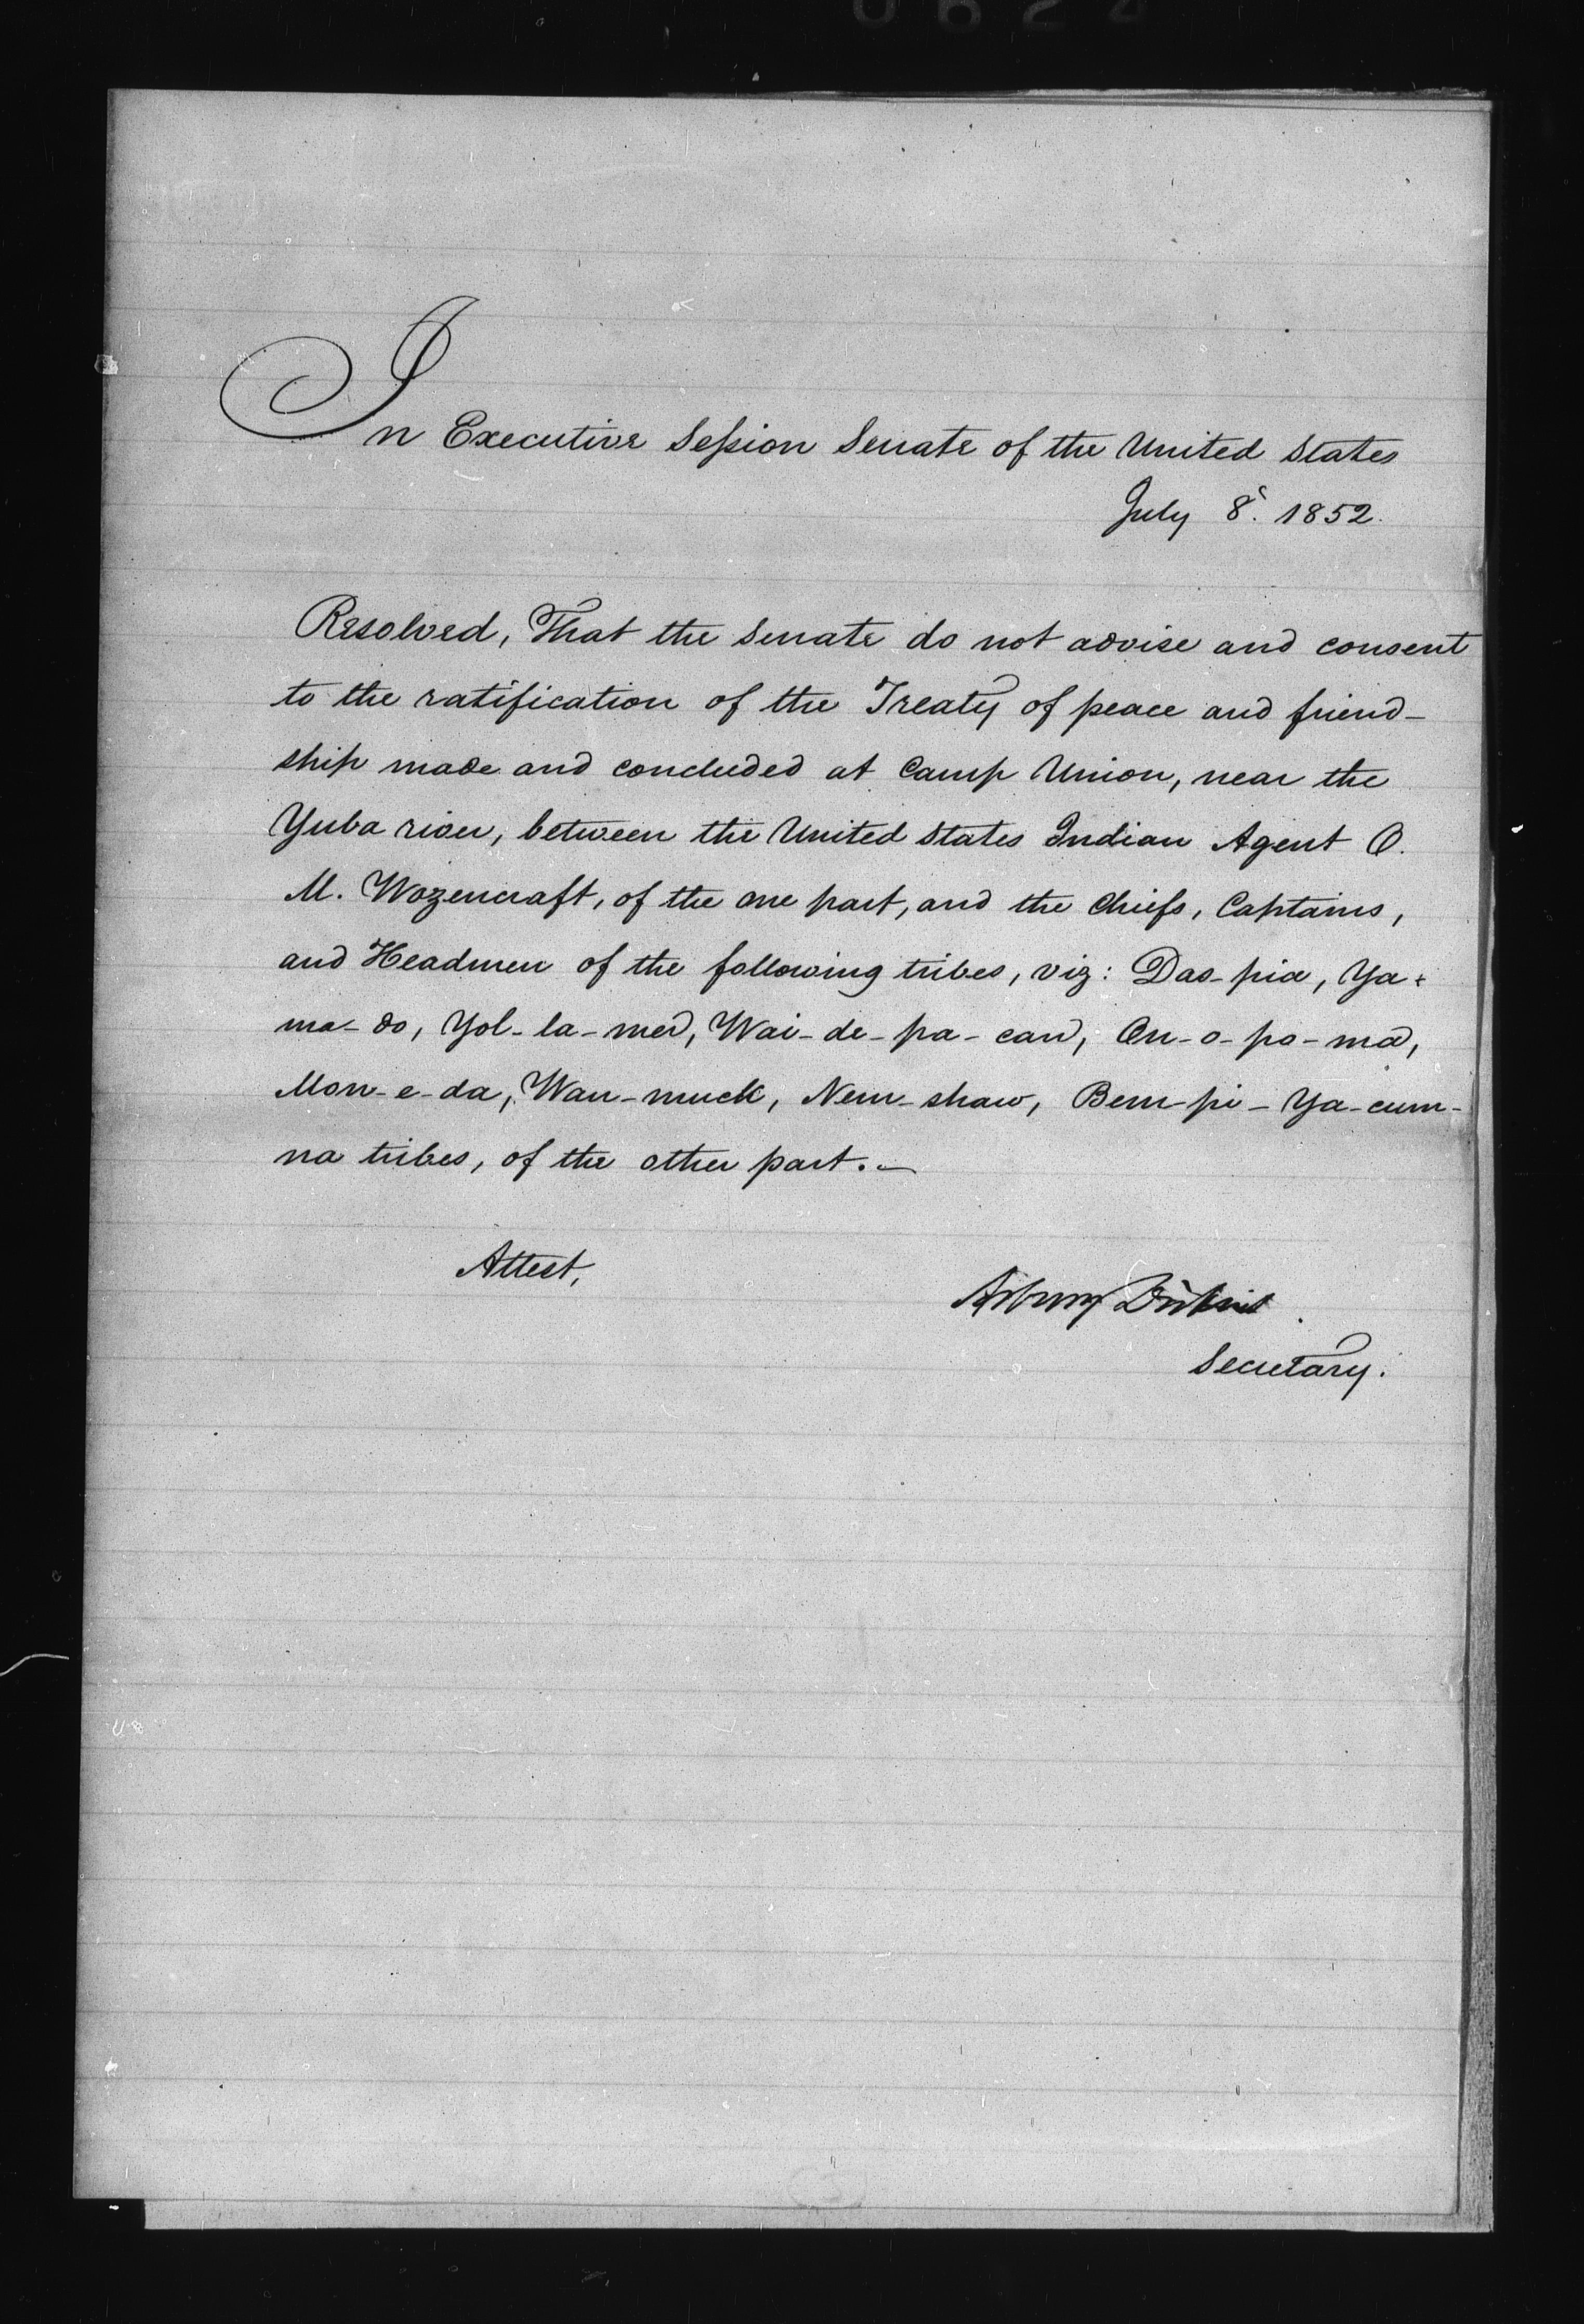 In Executive Session Senate of the United States
July 8. 1852.
Resolved, That the Senate do not advise and consent
to the ratification of the Treaty of peace and friend-
ship made and concluded at Camp Union, near the
Yuba river, between the United States Indian Agent O.
M. Wozencraft, of the one part, and the Chiefs, Captains,
and Headmen of the following tribes, viz: Das-pia, Ya-
ma-do, Yol-la-mer, Wai-de-pa-can, On-o-po-ma,
Mon-e-da, Wan-muck, Nem-shaw, Bem-pi-Ya-cum-
na tribes, of the other part.—
Attest,
Asbury Dickins
Secretary.